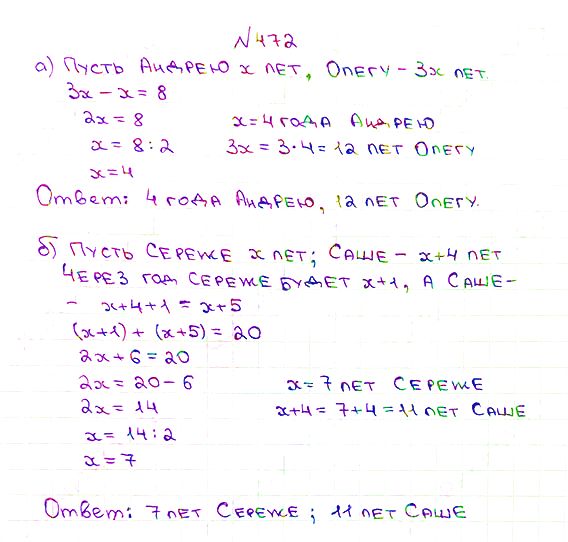 №472
а) Пусть Андрею x лет, Олегу – 3x лет.
3x – x = 8
2x = 8 x = 4 года Андрею
x = 8 : 2 3x = 3 · 4 = 12 лет Олегу
x = 4
Ответ: 4 года Андрею, 12 лет Олегу.
б) Пусть Сереже x лет; Саше – x+4 лет
Через год Сереже будет x+1, а Саше –
– x+4+1 = x+5
(x+1) + (x+5) = 20
2x + 6 = 20
2x = 20 – 6 x = 7 лет Сереже
2x = 14 x+4 = 7+4 = 11 лет Саше
x = 14 : 2
x = 7
Ответ: 7 лет Сереже ; 11 лет Саше